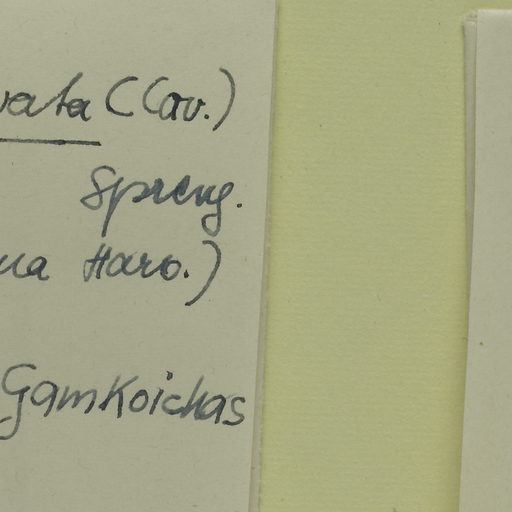 vata (Cav.)
Spreng.
na Harv.)
Gamkoichas